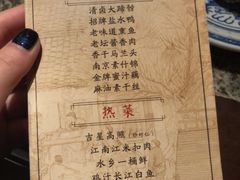 清卤大蹄髈
招牌盐水鸭
老味道熏鱼
老坛酱香肉
香干马兰头
南京素什锦
金牌蜜汁藕
麻油素干丝
热菜
吉星高照
江南江米扣肉
水乡一桶鲜
鸡汁长江白鱼